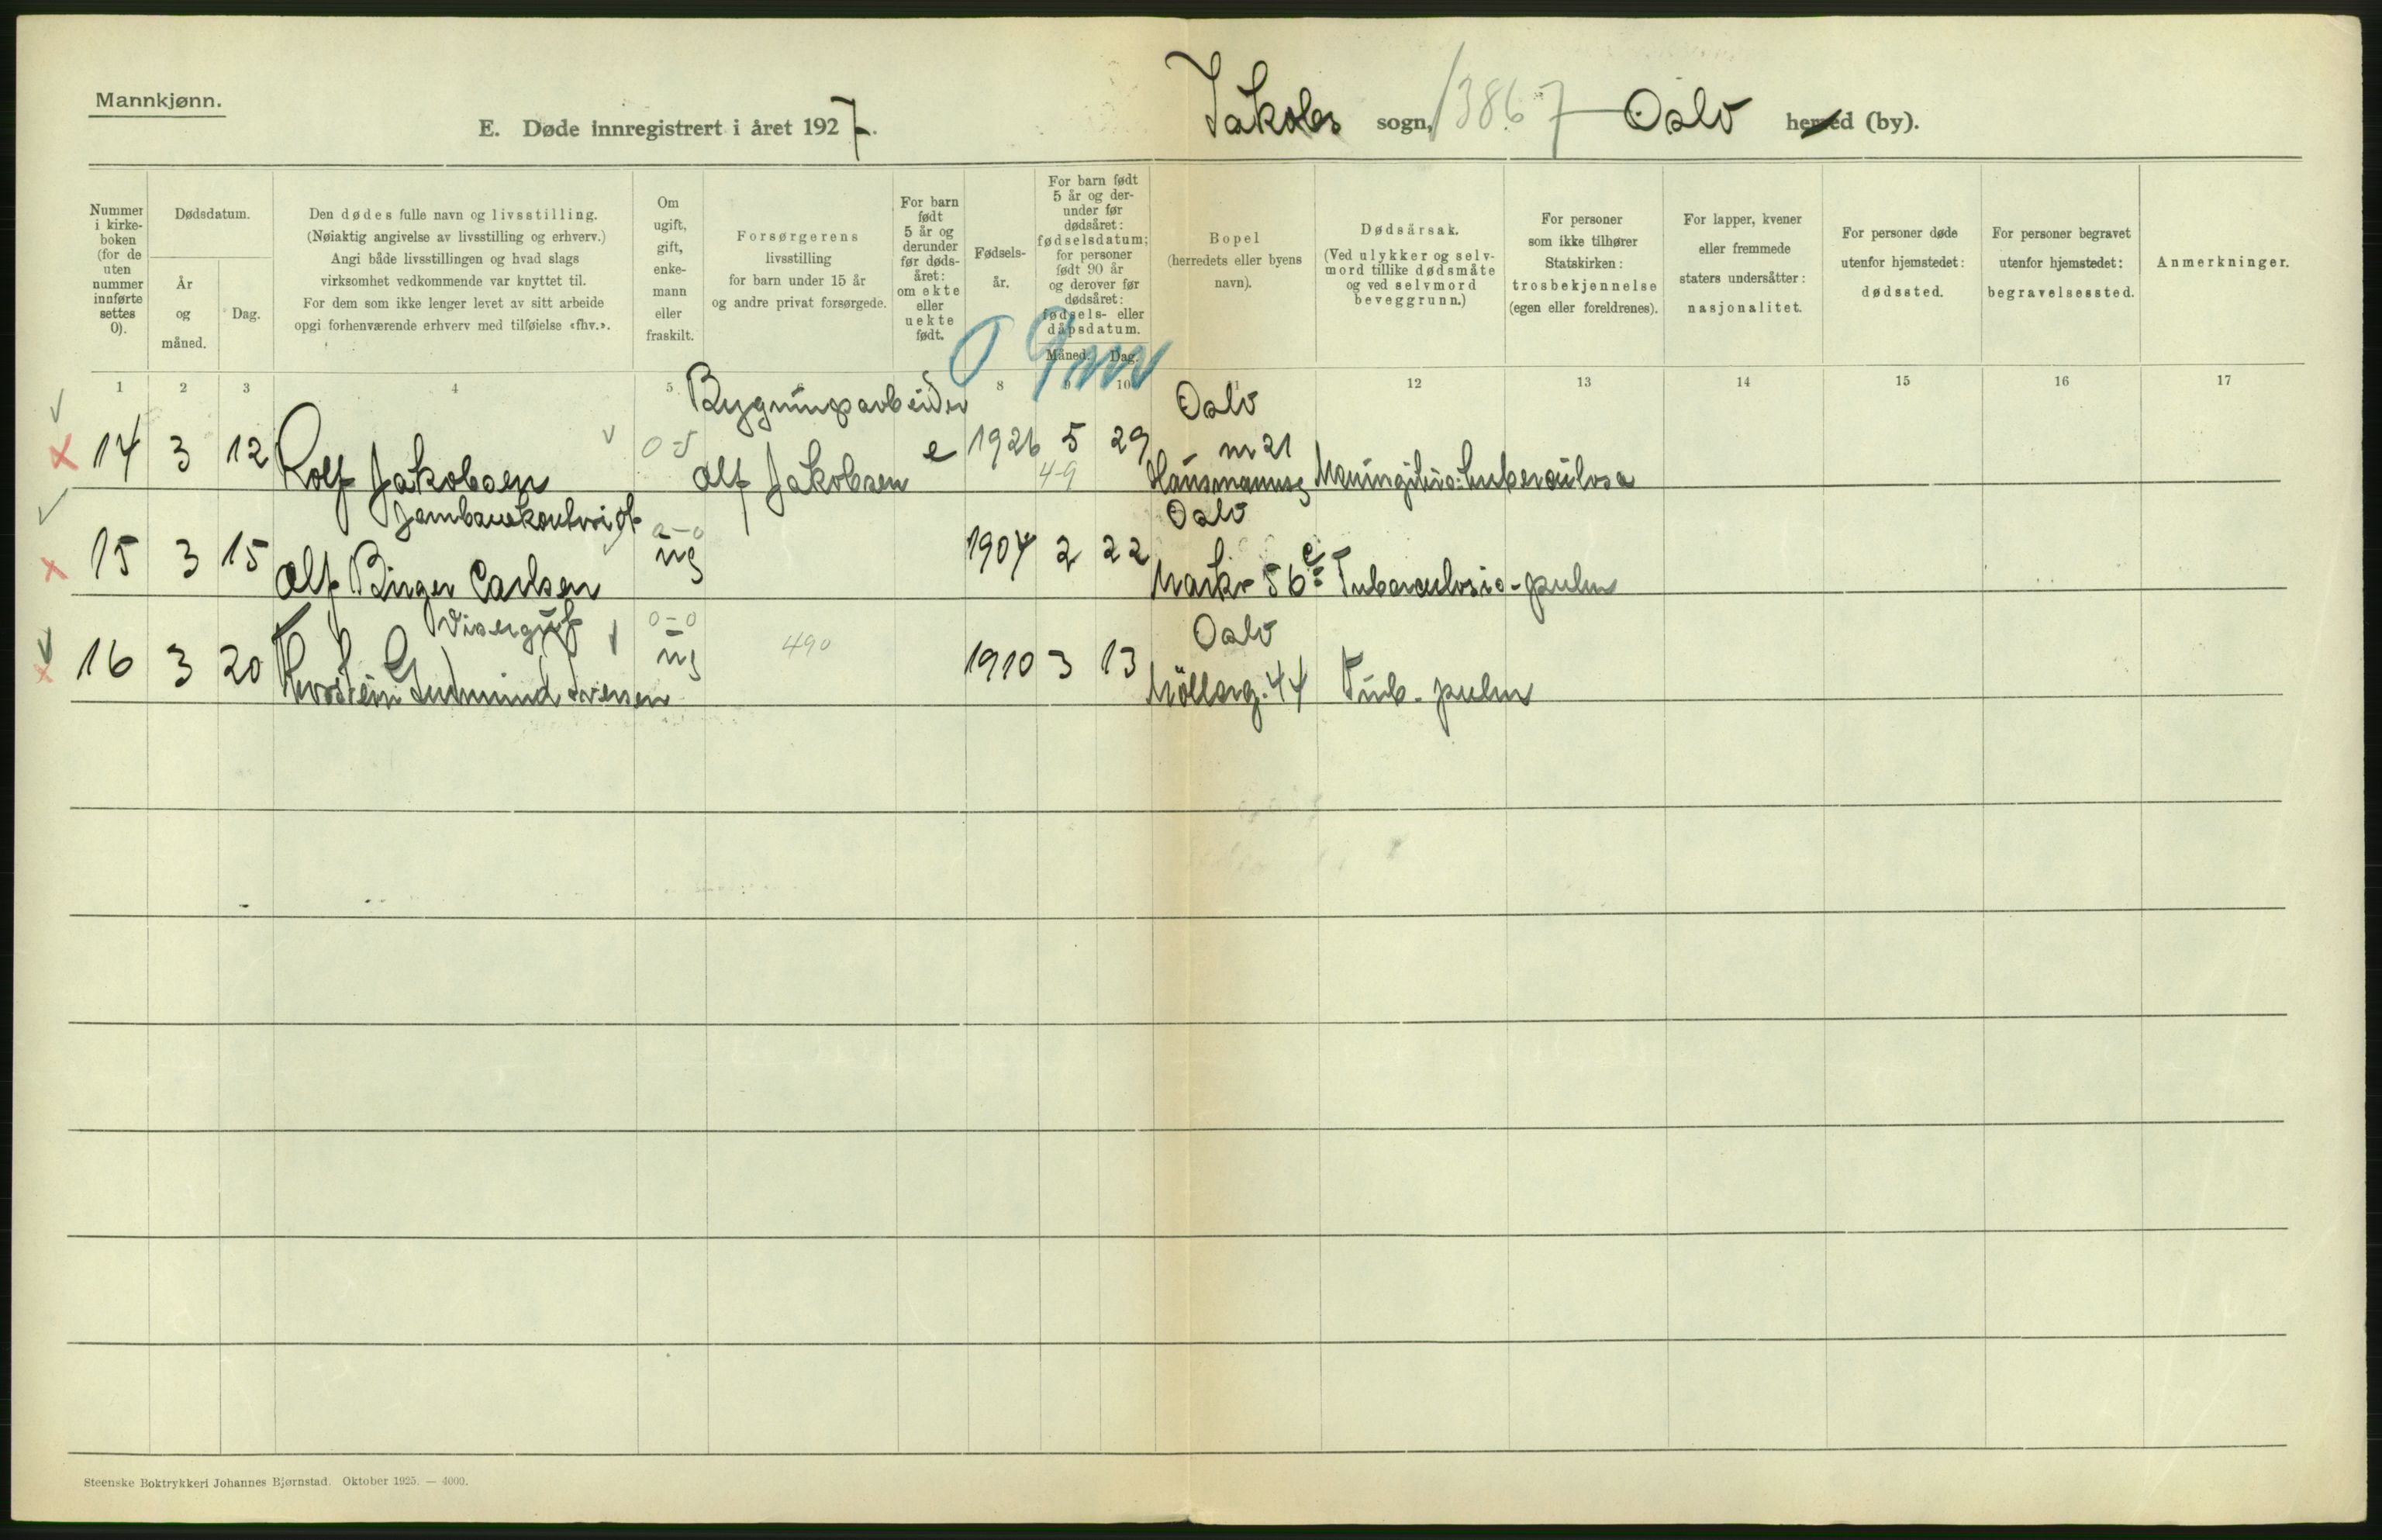 Mannkjønn.
E. Døde innregistrert i året 1927.
Jakobs sogn, 13867 Oslo herred (by).
Nummer i kirke-boken (for de uten nummer innførte settes 0).
Dødsdatum.
År og måned.
Dag.
Den dødes fulle navn og livsstilling.
(Nøiaktig angivelse av livsstilling og erhverv.)
Angi både livsstillingen og hvad slags
virksomhet vedkommende var knyttet til.
For dem som ikke lenger levet av sitt arbeide
opgi forhenværende erhverv med tilføielse «fhv.».
Om ugift, gift, enke-mann eller fraskilt.
Forsørgerens
livsstilling
for barn under 15 år
og andre privat forsørgede.
For barn født 5 år og derunder før døds-året: om ekte eller uekte født.
Fødsels-år.
For barn født 5 år og der-under før dødsåret: fødselsdatum; for personer født 90 år og derover før dødsåret: fødsels- eller dåpsdatum.
Måned. Dag.
Bopel
(herredets eller byens navn).
Dødsårsak.
(Ved ulykker og selv-mord tillike dødsmåte og ved selvmord beveggrunn.)
For personer som ikke tilhører Statskirken: trosbekjennelse (egen eller foreldrenes).
For lapper, kvener eller fremmede staters undersåtter: nasjonalitet.
For personer døde utenfor hjemstedet: dødssted.
For personer begravet utenfor hjemstedet: begravelsessted.
Anmerkninger.
1 2 3 4 5 8 9 10 12 13 14 15 16 17
Bygningsarbeider Oslo
14 3 12 Rolf Jakobsen 0-5 Alf Jakobsen e 1926 5 29 nr 21
4-9 Hausmannsg Meningitis tuberculosa
Jernbanekontorist Oslo
15 3 15 Alf Birger Carlsen ug 1904 2 22 Markv 56 c Tuberculosis-pulm
Visergut 0-0 Oslo
16 3 20 Thorstein Gudmund Iversen ug 490 1910 3 13 Möllerg. 44 Tub. pulm
Steenske Boktrykkeri Johannes Bjørnstad. Oktober 1925. — 4000.